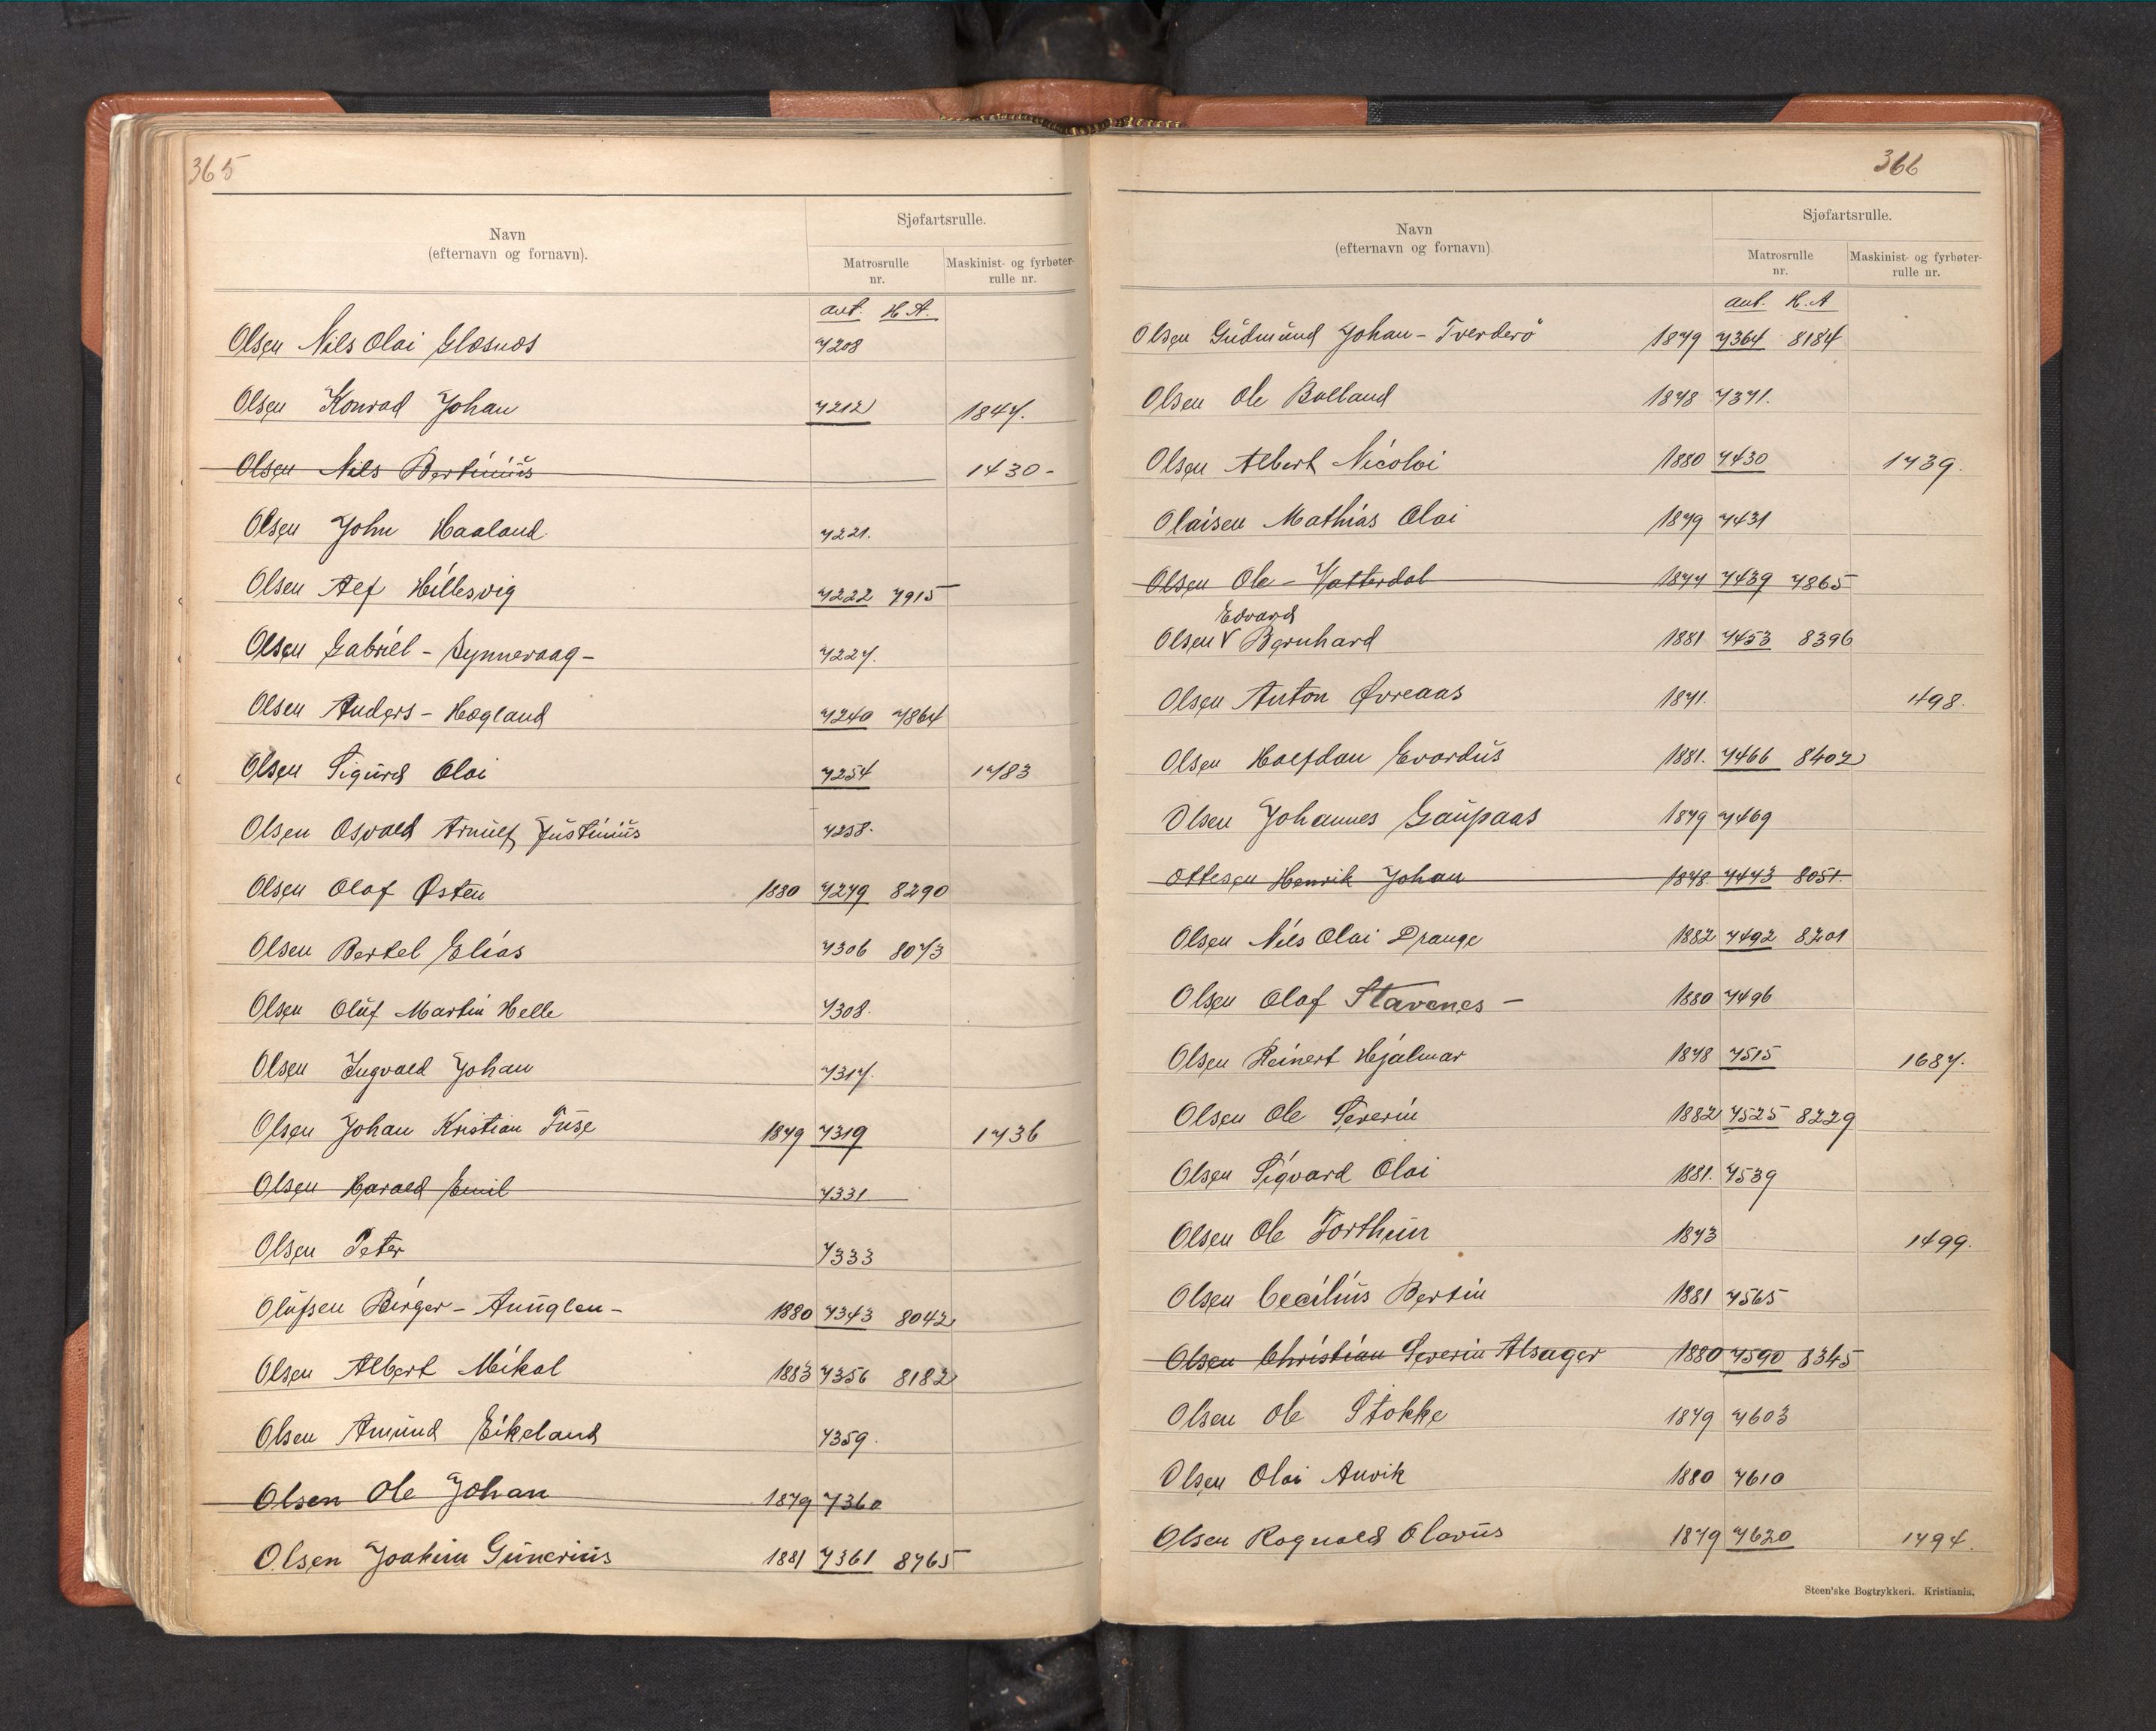 365
Navn
(efternavn og fornavn).
Sjøfartsrulle.
Matrosrulle
nr.
Maskinist- og fyrbøter-
rulle nr.
ant. H.A.
Olsen Nils Olai Glosnos 7208
Olsen Konrad Johan 7212 1847.
Olsen Nils Bertinius 1430-
Olsen John Haaland 7221.
Olsen Alf Hillesvig 7222 7915
Olsen Gabriel - Synnevaag - 7227.
Olsen Anders - Hogland 7240 7864
Olsen Sigurd Olai 7254 1783
Olsen Osvald Arnulf Justinius 7258.
Olsen Olaf Østen 1880 7279 8290
Olsen Bertel Elias 7306 8073
Olsen Oluf Martin Helle 7308.
Olsen Ingvald Johan 7317.
Olsen Johan Kristian Tuse 1879 7319 1736
Olsen Harald Emil 7331
Olsen Peter 7333
Olufsen Birger - Aunglen - 1880 7343 8042
Olsen Albert Mikal 1883 7356 8182
Olsen Amund Eikeland 7359.
Olsen Ole Johan 1879 7360
Olsen Joakim Gunerius 1881 7361 8765
366
Navn
(efternavn og fornavn).
Sjøfartsrulle.
Matrosrulle
nr.
Maskinist- og fyrbøter-
rulle nr.
ant. H.A
Olsen Gudmund Johan - Tverderö 1879 7364 8184
Olsen Ole Bolland 1878 7371.
Olsen Albert Nicolai 1880 7430 1739.
Olaisen Mathias Olai 1879 7431
Olsen Ole - Vatterdal 1877 7439 7865
Edvard
Olsen V Bernhard 1881 7453 8396
Olsen Anton Øvreaas 1871. 1498.
Olsen Halfdan Evardus 1881. 7466 8402
Olsen Johannes Gaupaas 1879 7469
Ottesen Henrik Johan 1878. 7473 8051.
Olsen Nils Olai Drange 1882 7492 8201
Olsen Olaf Stavenes - 1880 7496
Olsen Reinert Hjalmar 1878 7515 1687.
Olsen Ole Severin 1882 7525 8229
Olsen Sigvard Olai 1881. 7539
Olsen Ole Forthun 1873 1499.
Olsen Cecilius Bertin 1881 7565
Olsen Christian Severin Alsager 1880 7590 8345
Olsen Ole Stokke 1879 7603
Olsen Olai Anvik 1880 7610
Olsen Rognald Olavus 1879 7620 1794.
Steen'ske Bogtrykkeri. Kristiania.